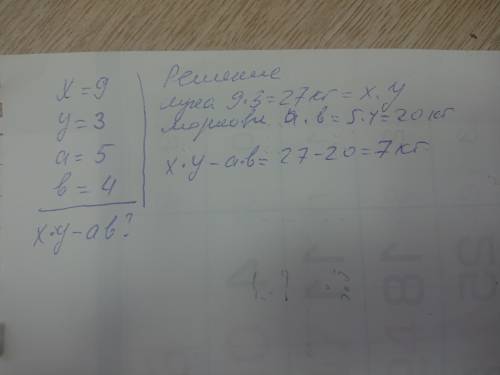 x = 9
y = 3
a = 5
в = 4
x·y-aв?
Решение
лука 9·3=27кг = x·y
моркови a·в=5·4=20кг
x·y-a·в= 27-20=7кг